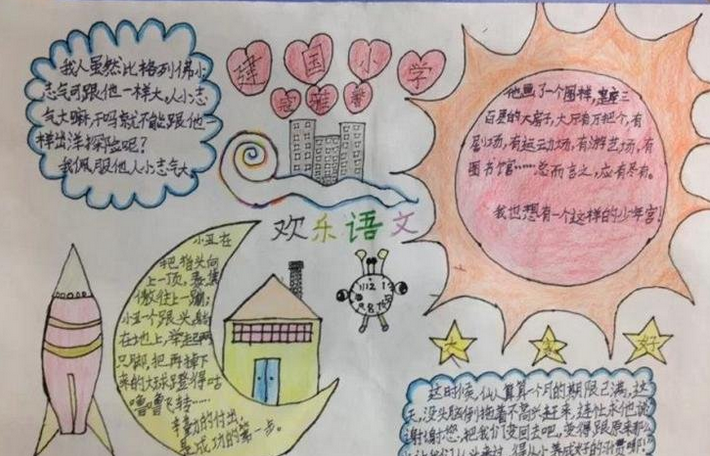 我人虽然比格列佛小
志气可跟他一样大。人小志
气大嘛，不吗就不能跟他一
样出洋探险呢？
我佩服他人小志气大
建国小学
欢乐语文
他画了一个图样，
百层的大房子，大厅有万把个，有
剧场，有运动场，有游艺场，有
图书馆……总而言之，应有尽有。
我也想有一个这样的少年宫！
小丑在
把指头向
上一顶，
往上一蹦；
小丑一个跟头
在地上，举起两
只脚，把再掉下
来的大球蹬得咕
噜噜飞转……
辛勤的付出，
是成功的第一步。
大家好
这时候，仙人算算一个月的期限已满，这
天，没头脑倒拖着不高兴赶来，连忙求他说
谢谢您，把我们变回去吧，变得跟原来那么